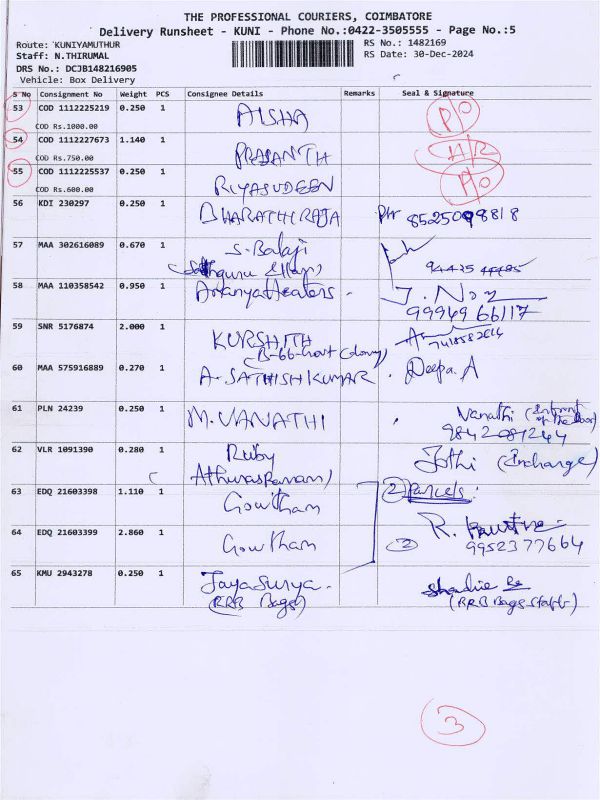 THE PROFESSIONAL COURIERS, COIMBATORE
Delivery Runsheet - KUNI - Phone No.:0422-3505555 - Page No.:5
Route: KUNIYAMUTHUR RS No.: 1482169
Staff: N.THIRUMAL RS Date: 30-Dec-2024
DRS No.: DCJB148216905
Vehicle: Box Delivery
S No Consignment No Weight PCS Consignee Details Remarks Seal & Signature
53 COD 1112225219 0.250 1 AISHA P/O
COD Rs.1000.00
54 COD 1112227673 1.140 1 PRASANTH
COD Rs.750.00
55 COD 1112225537 0.250 1 RIYASUDEEN P/O
COD Rs.600.00
56 KDI 230297 0.250 1 BHARATHIRAJA 8525098818
57 MAA 302616089 0.670 1 S. Balaji
58 MAA 110358542 0.950 1 Ananya Heaters
99949 66117
59 SNR 5176874 2.000 1 KURSHITH
60 MAA 575916889 0.270 1 A. SATHISHKUMAR. Deepa. A
61 PLN 24239 0.250 1 M. VANATHI Vanathi
62 VLR 1091390 0.280 1 Ruby Jothi (Incharge)
63 EDQ 21603398 1.110 1 Gowtham 2 Parcels:
64 EDQ 21603399 2.860 1 Gowtham 2 R.
9952377664
65 KMU 2943278 0.250 1 Jayasurya.
(RRB Bags) (RRB Bags staff)
3